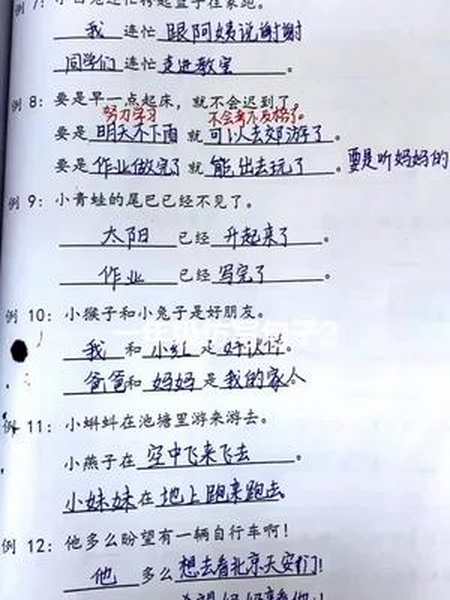 例 7：小白兔连忙挎起篮子往家跑。
我 连忙 跟阿姨说谢谢
同学们 连忙 走进教室 。
例 8：要是早一点起床，就不会迟到了。
努力学习 不会考不及格了。
要是 明天不下雨 就 可以去郊游了 。
要是 作业做完了 就 能出去玩了 。要是听妈妈的
例 9：小青蛙的尾巴已经不见了。
太阳 已经 升起来了 。
作业 已经 写完了 。
例 10：小猴子和小兔子是好朋友。
我 和 小红 是 好伙伴。
爸爸 和 妈妈 是 我的家人
例 11：小蝌蚪在池塘里游来游去。
小燕子在 空中飞来飞去 。
小妹妹 在 地上跑来跑去
例 12：他多么盼望有一辆自行车啊！
他 多么 想去看北京天安门！